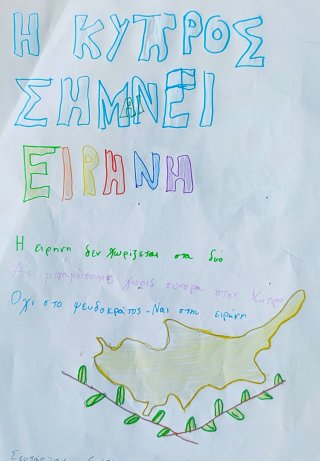 Η ΚΥΠΡΟΣ
ΣΗΜΑΙΝΕΙ
ΕΙΡΗΝΗ
Η ειρηνη δεν χωρίζεται στα δυό
Ας μεγαλώσουμε χωρίς σύνορα στην Κυπρο
Όχι στο ψευδοκράτος. Ναι στην ειρήνη